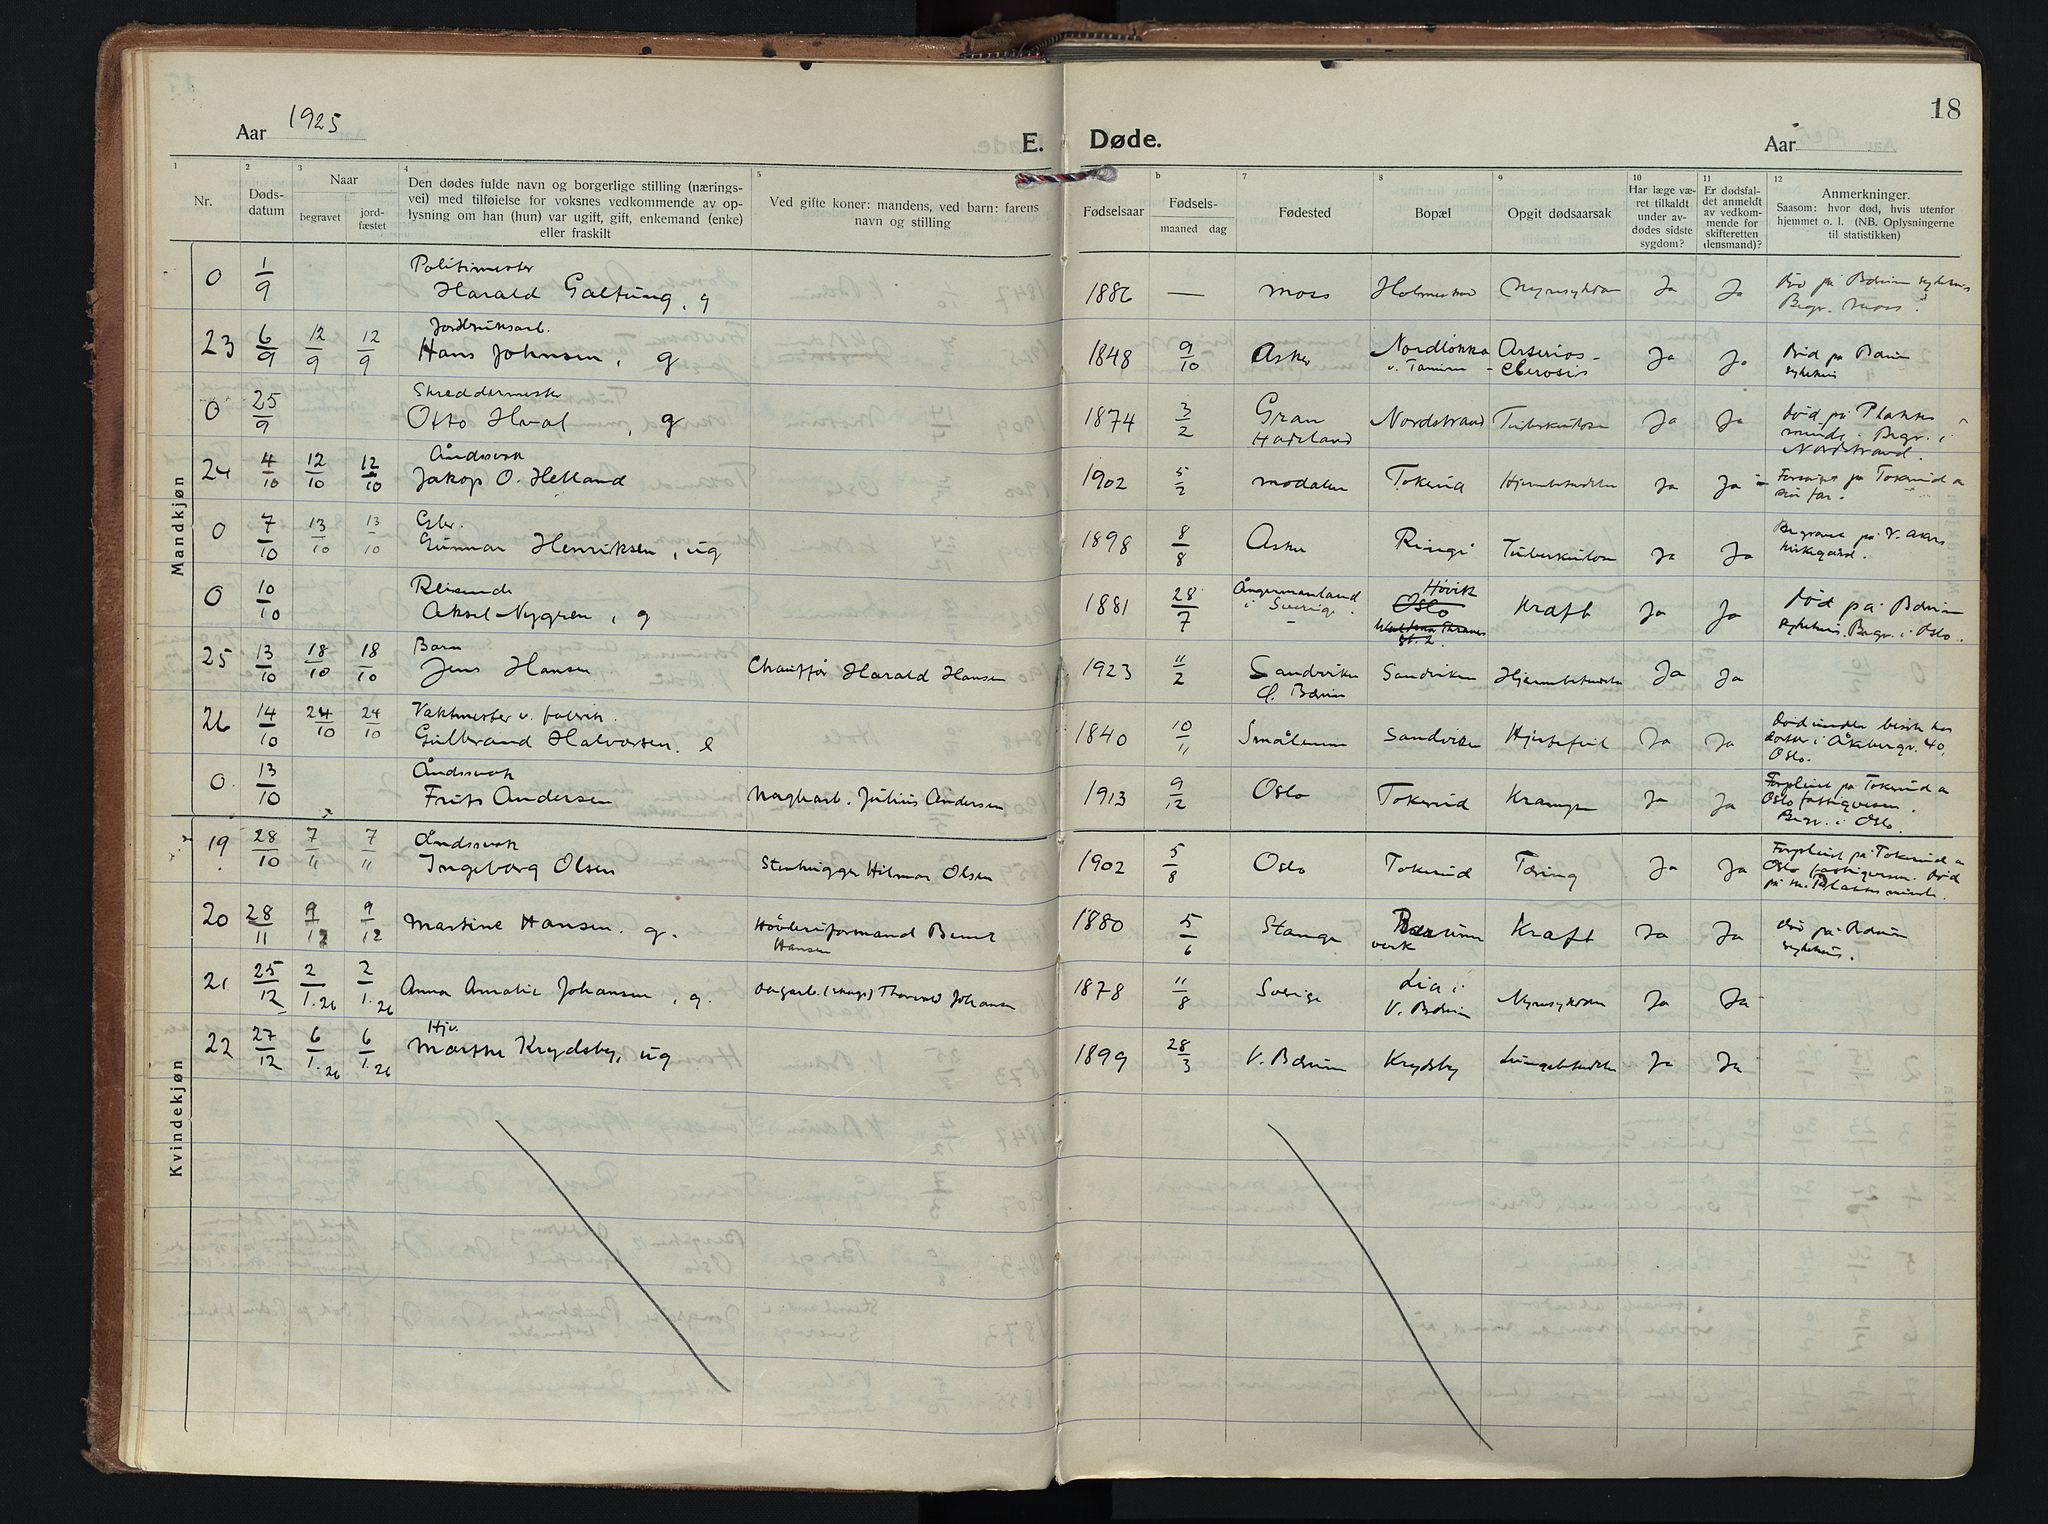 18
Aar 1925
E.
Døde.
Aar
1
2
3
4
5
b
7
8
9
10
11
12
Nr.
Døds-
datum
Naar
begravet
jord-
fæstet
Den dødes fulde navn og borgerlige stilling (nærings-
vei) med tilføielse for voksnes vedkommende av op-
lysning om han (hun) var ugift, gift, enkemand (enke)
eller fraskilt
Ved gifte koner: mandens, ved barn: farens
navn og stilling
Fødselsaar
Fødsels-
maaned dag
Fødested
Bopæl
Opgit dødsaarsak
Har læge væ-
ret tilkaldt
under av-
dødes sidste
sygdom?
Er dødsfal-
det anmeldt
av vedkom-
mende for
skifteretten
(lensmand)?
Anmerkninger.
Saasom: hvor død, hvis utenfor
hjemmet o. l. (NB. Oplysningerne
til statistikken)
Mandkjøn
0 1/9 Politimester
Harald Galtung, g 1886 — Moss Holmestrand Nyresykdom Ja Ja Død på Bærum sykehus
Begr. Moss
23 6/9 12/9 12/9 Jordbruksarb.
Hans Johnsen, g 1848 9/10 Asker Nordløkka
v. Tanum Arterios-
clerosis Ja Ja Død på Bærum
sykehus
0 25/9 Skreddermester
Otto Hval, g 1874 3/2 Gran
Hadeland Nordstrand Tuberkulose Ja Ja Død på Planks
minde. Begr. i
Nordstrand.
24 4/10 12/10 12/10 Åndssvak
Jakop O. Helland 1902 5/2 Modalen Tokerud Hjernebetendelse Ja Ja på Tokerud a
sin far.
0 7/10 13/10 13/10 Gbr.
Gunnar Henriksen, ug 1898 8/8 Asker Ringi Tuberkulose Ja Ja Begravet på V. Akers
kirkegård.
0 10/10 Reisende
Aksel Nygren, g 1881 28/7 Ångermanland
i Sverige Høvik
Oslo
Thranes
gt. 2. Kræft Ja Ja Død på Bærum
sykehus. Begr. i Oslo.
25 13/10 18/10 18/10 Barn
Jens Hansen Chauffør Harald Hansen 1923 11/2 Sandviken
Bærum Sandviken Hjernebetendelse Ja Ja
26 14/10 24/10 24/10 Vaktmester v. fabrik.
Gulbrand Halvorsen. e 1840 10/11 Smålenene Sandviken Hjertefeil Ja Ja Død under besøk hos
datter i Åkebergv. 40,
Oslo.
0. 13/10 Åndssvak
Frits Andersen Magasinarb. Julius Andersen 1913 9/12 Oslo Tokerud Krampe Ja Ja Forpleiet på Tokerud a
Oslo fattigvesen.
Begr. i Oslo.
Kvindekjøn
19 28/10 7/11 7/11 Åndssvak
Ingeborg Olsen Stenhugger Hilmar Olsen 1902 5/8 Oslo Tokerud Tæring Ja Ja Forpleiet på Tokerud a
Oslo fattigvesen. Død
på M. Planks minde.
20 28/11 9/12 9/12 Martine Hansen. g. Høvleriformand Bernt
Hansen 1880 5/6 Stange Bærums
verk Kræft Ja Ja død på Bærum
sykehus.
21 25/12 2/1.26 2/1.26 Anna Amalie Johansen, g. Dagarb. (skogs) Thorvald Johansen 1878 11/8 Sverige Lia i
V. Bærum Nyresykdom Ja Ja
22 27/12 6/1.26 6/1.26 Hjv.
Marthe Krydsby, ug 1899 28/3 V. Bærum Krydsby Lungebetendelse Ja Ja